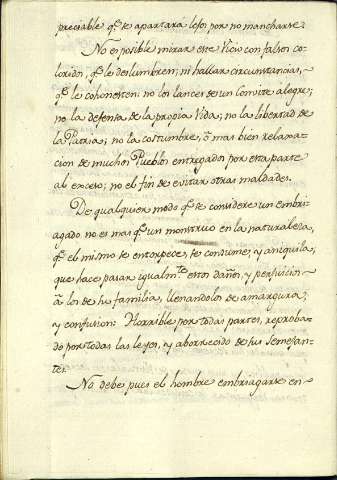 preciable qᵉ. te apartará lejos por no mancharse.
No es posible mirar este Vicio con falsos co-
loridos, qᵉ le deslumbren; ni hallar circunstancias,
qᵉ. le cohonesten: no los lances de un Convite alegre;
no la defensa de la propia Vida; no la libertad de
la Patria; no la costumbre, ó mas bien relaxa-
cion de muchos Pueblos entregados por esta parte
al exceso; no el fin de evitar otras maldades.
De qualquier modo qᵉ. se considere un embri-
agado no es mas qᵉ. un monstruo en la naturaleza,
qᵉ. el mismo se entorpece, se consume, y aniquila;
que hace pasar igualmᵗᵉ. estos daños, y perjuicios
á los de su familia, llenandolos de amargura,
y confusion: Horrible por todas partes, reproba-
do por todas las leyes, y aborrecido de sus Semejan-
tes.
No debe pues el hombre embriagarse en-